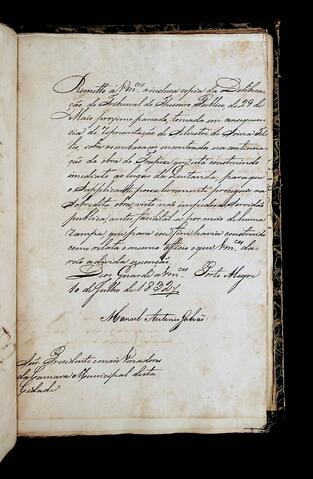 Remetto á Vm.ces a inclusa copia da Delibera-
ção do Tribunal do Thesouro Publico de 29 de
Maio proximo passado, tomada em consequen-
cia da representação de
sobre o embaraço encontrado na continua-
ção da obra do Trapixe que está construindo
immediato ao lugar da Quitanda, para que
o Supplicante possa livremente proseguir na
sobredita obra, visto não impedir a servidão
publica, antes facilital-a por meio de huma
rampa, que para esse fim havia construido
como relata o mesmo Officio o que Vm.ces da-
rão a devida execução.
Deos Guarde a Vm.ces Porto Alegre
10 de Julho de 18
Manoel Antonio Galvão
Snr.es Presidente e mais Vereadores
da Camara Municipal desta
Cidade